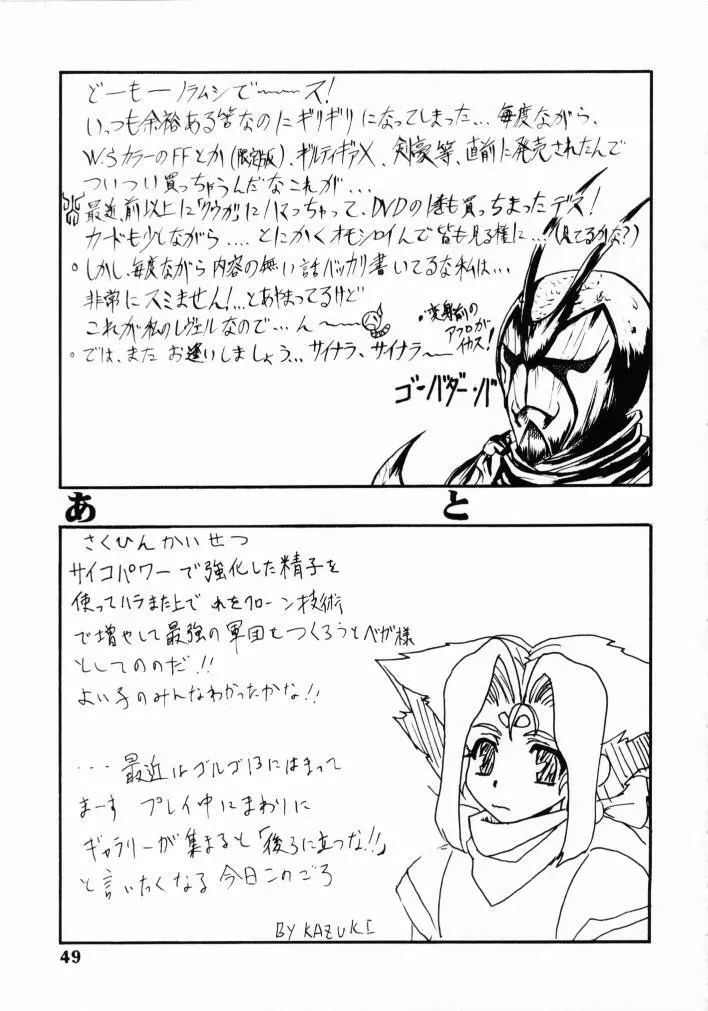 どーもーノラムシでーーース!
いっつも余裕ある筈なのにギリギリになってしまった...毎度ながら、
W.SカラーのFFとか(限定版)、ギルティギアX、剣豪等、直前に発売されたんで
ついつい買っちゃうんだなこれが...
最近、前以上に「クウガ」にハマっちゃって、DVDの1巻も買っちまったデス!
カードも少しながら....とにかくオモシロイんで皆も見る様に...(見てるかな?)
。しかし、毎度ながら内容の無い話バッカリ書いてるな私は...
非常にスミません!...とあやまってるけど
これが私のレヴェルなので...ん〜〜
。では、また お逢いしましょう...サイナラ、サイナラ〜
・変身前の
アフロが
イカス!
ゴ・バダー・バ
あ と
さくひんかいせつ
サイコパワーで強化した精子を
使ってハラませ
クローン技術
で増やして最強の軍団をつくろうとベガ様
としてのだ!!
よい子のみんなわかったかな!!
...最近はゴルゴ13にはまって
まーす プレイ中にまわりに
ギャラリーが集まると「後ろに立つな!!」
と言いたくなる今日このごろ
BY KAZUKI
49